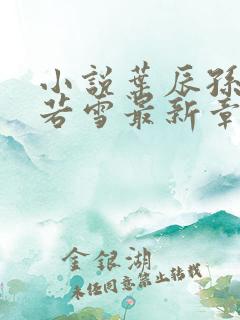 小说葉辰孫
若雪最新章
金银湖
未经同意禁止转载